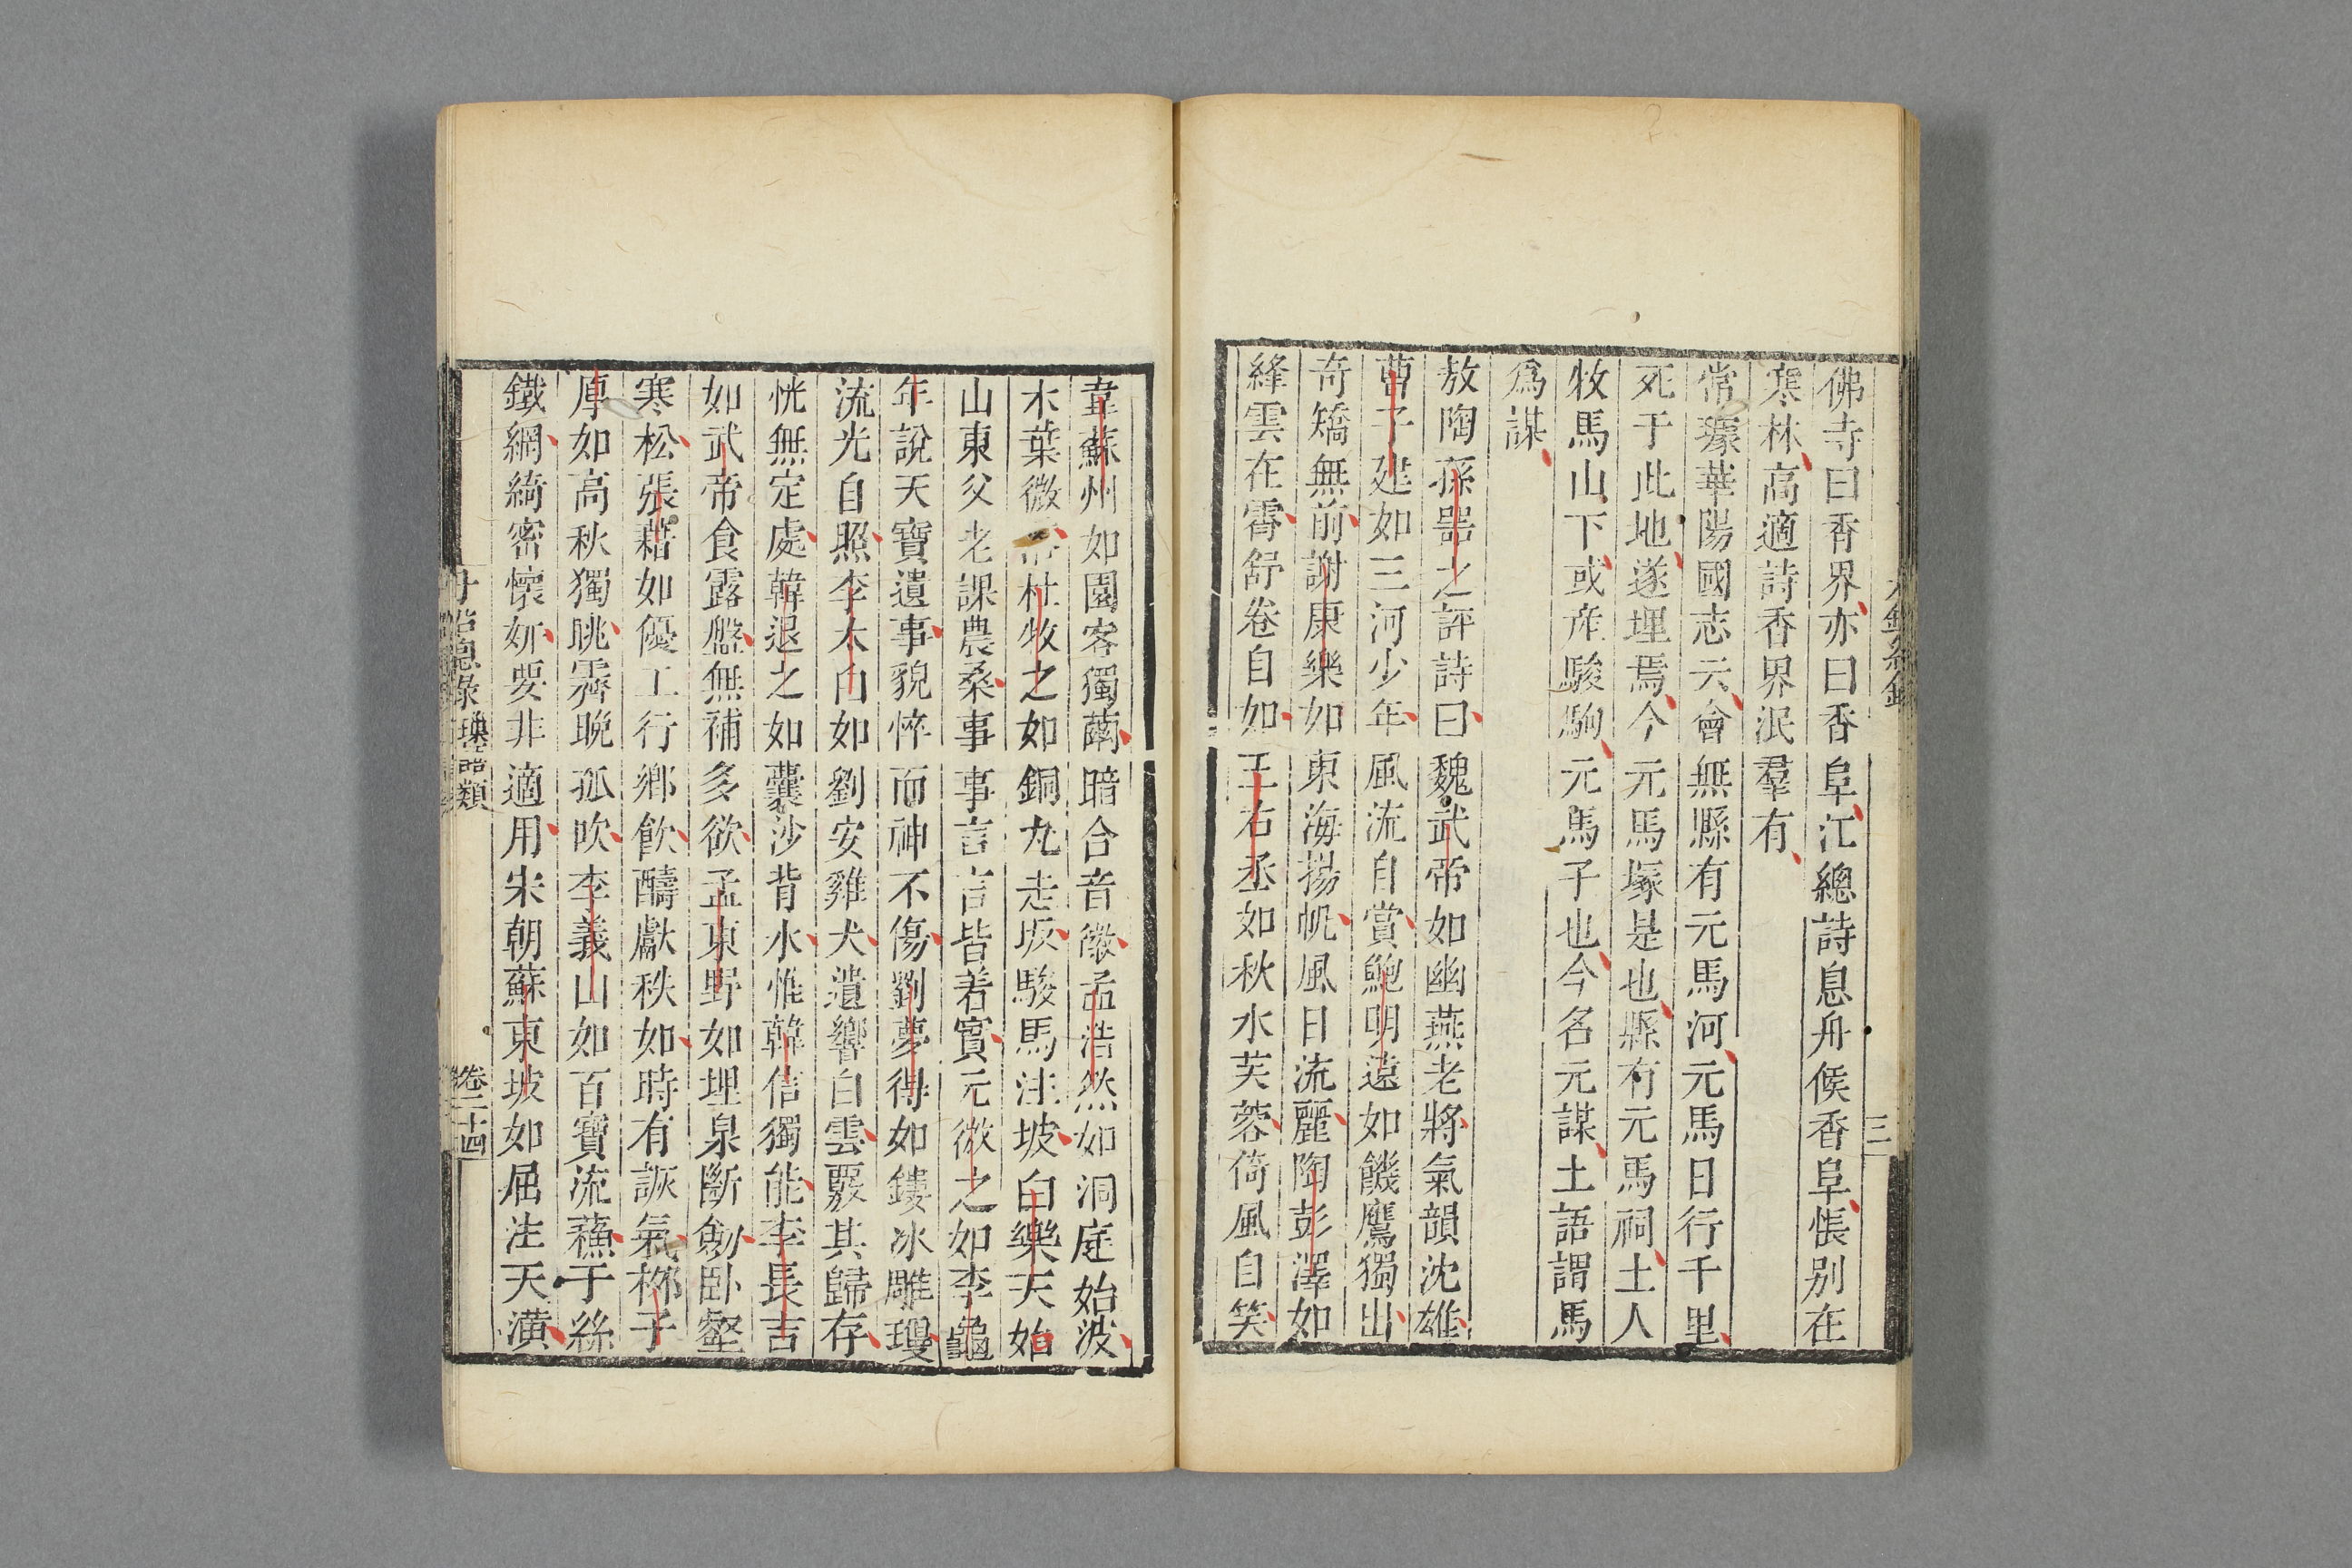 佛寺曰香界亦曰香阜江總詩息舟候香阜悵别在
寒林高適詩香界泯羣有
常璩華陽國志云會無縣有元馬河元馬日行千里
死于此地遂埋焉今元馬塚是也縣有元馬祠土人
牧馬山下或産駿駒元馬子也今名元謀土語謂馬
爲謀
敖陶孫噐之評詩曰魏武帝如幽燕老將氣韻沈雄
曹子建如三河少年風流自賞鮑明遠如饑鷹獨出
奇矯無前謝康樂如東海揚帆風日流麗陶彭澤如
絳雲在霄舒卷自如王右丞如秋水芙蓉倚風自笑
三
韋蘇州如園客獨繭暗合音徽孟浩然如洞庭始波
木葉微杜牧之如銅丸走坂駿馬注坡白樂天如
山東父老課農桑事事言言皆着實元微之如李龜
年說天寶遺事貌悴而神不傷劉夢得如鏤冰雕瓊
流光自照李太白如劉安雞犬遺響白雲覈其歸存
恍無定處韓退之如囊沙背水惟韓信獨能李長吉
如武帝食露盤無補多欲孟東野如埋泉斷劍卧壑
寒松張藉如優工行鄉飲醻獻秩如時有詼氣柳子
厚如高秋獨眺霽晩孤吹李義山如百寶流蘇千絲
鐵網綺密懷妍要非適用宋朝蘇東坡如屈注天潢
丹鉛總錄 璅語類 卷二十 四